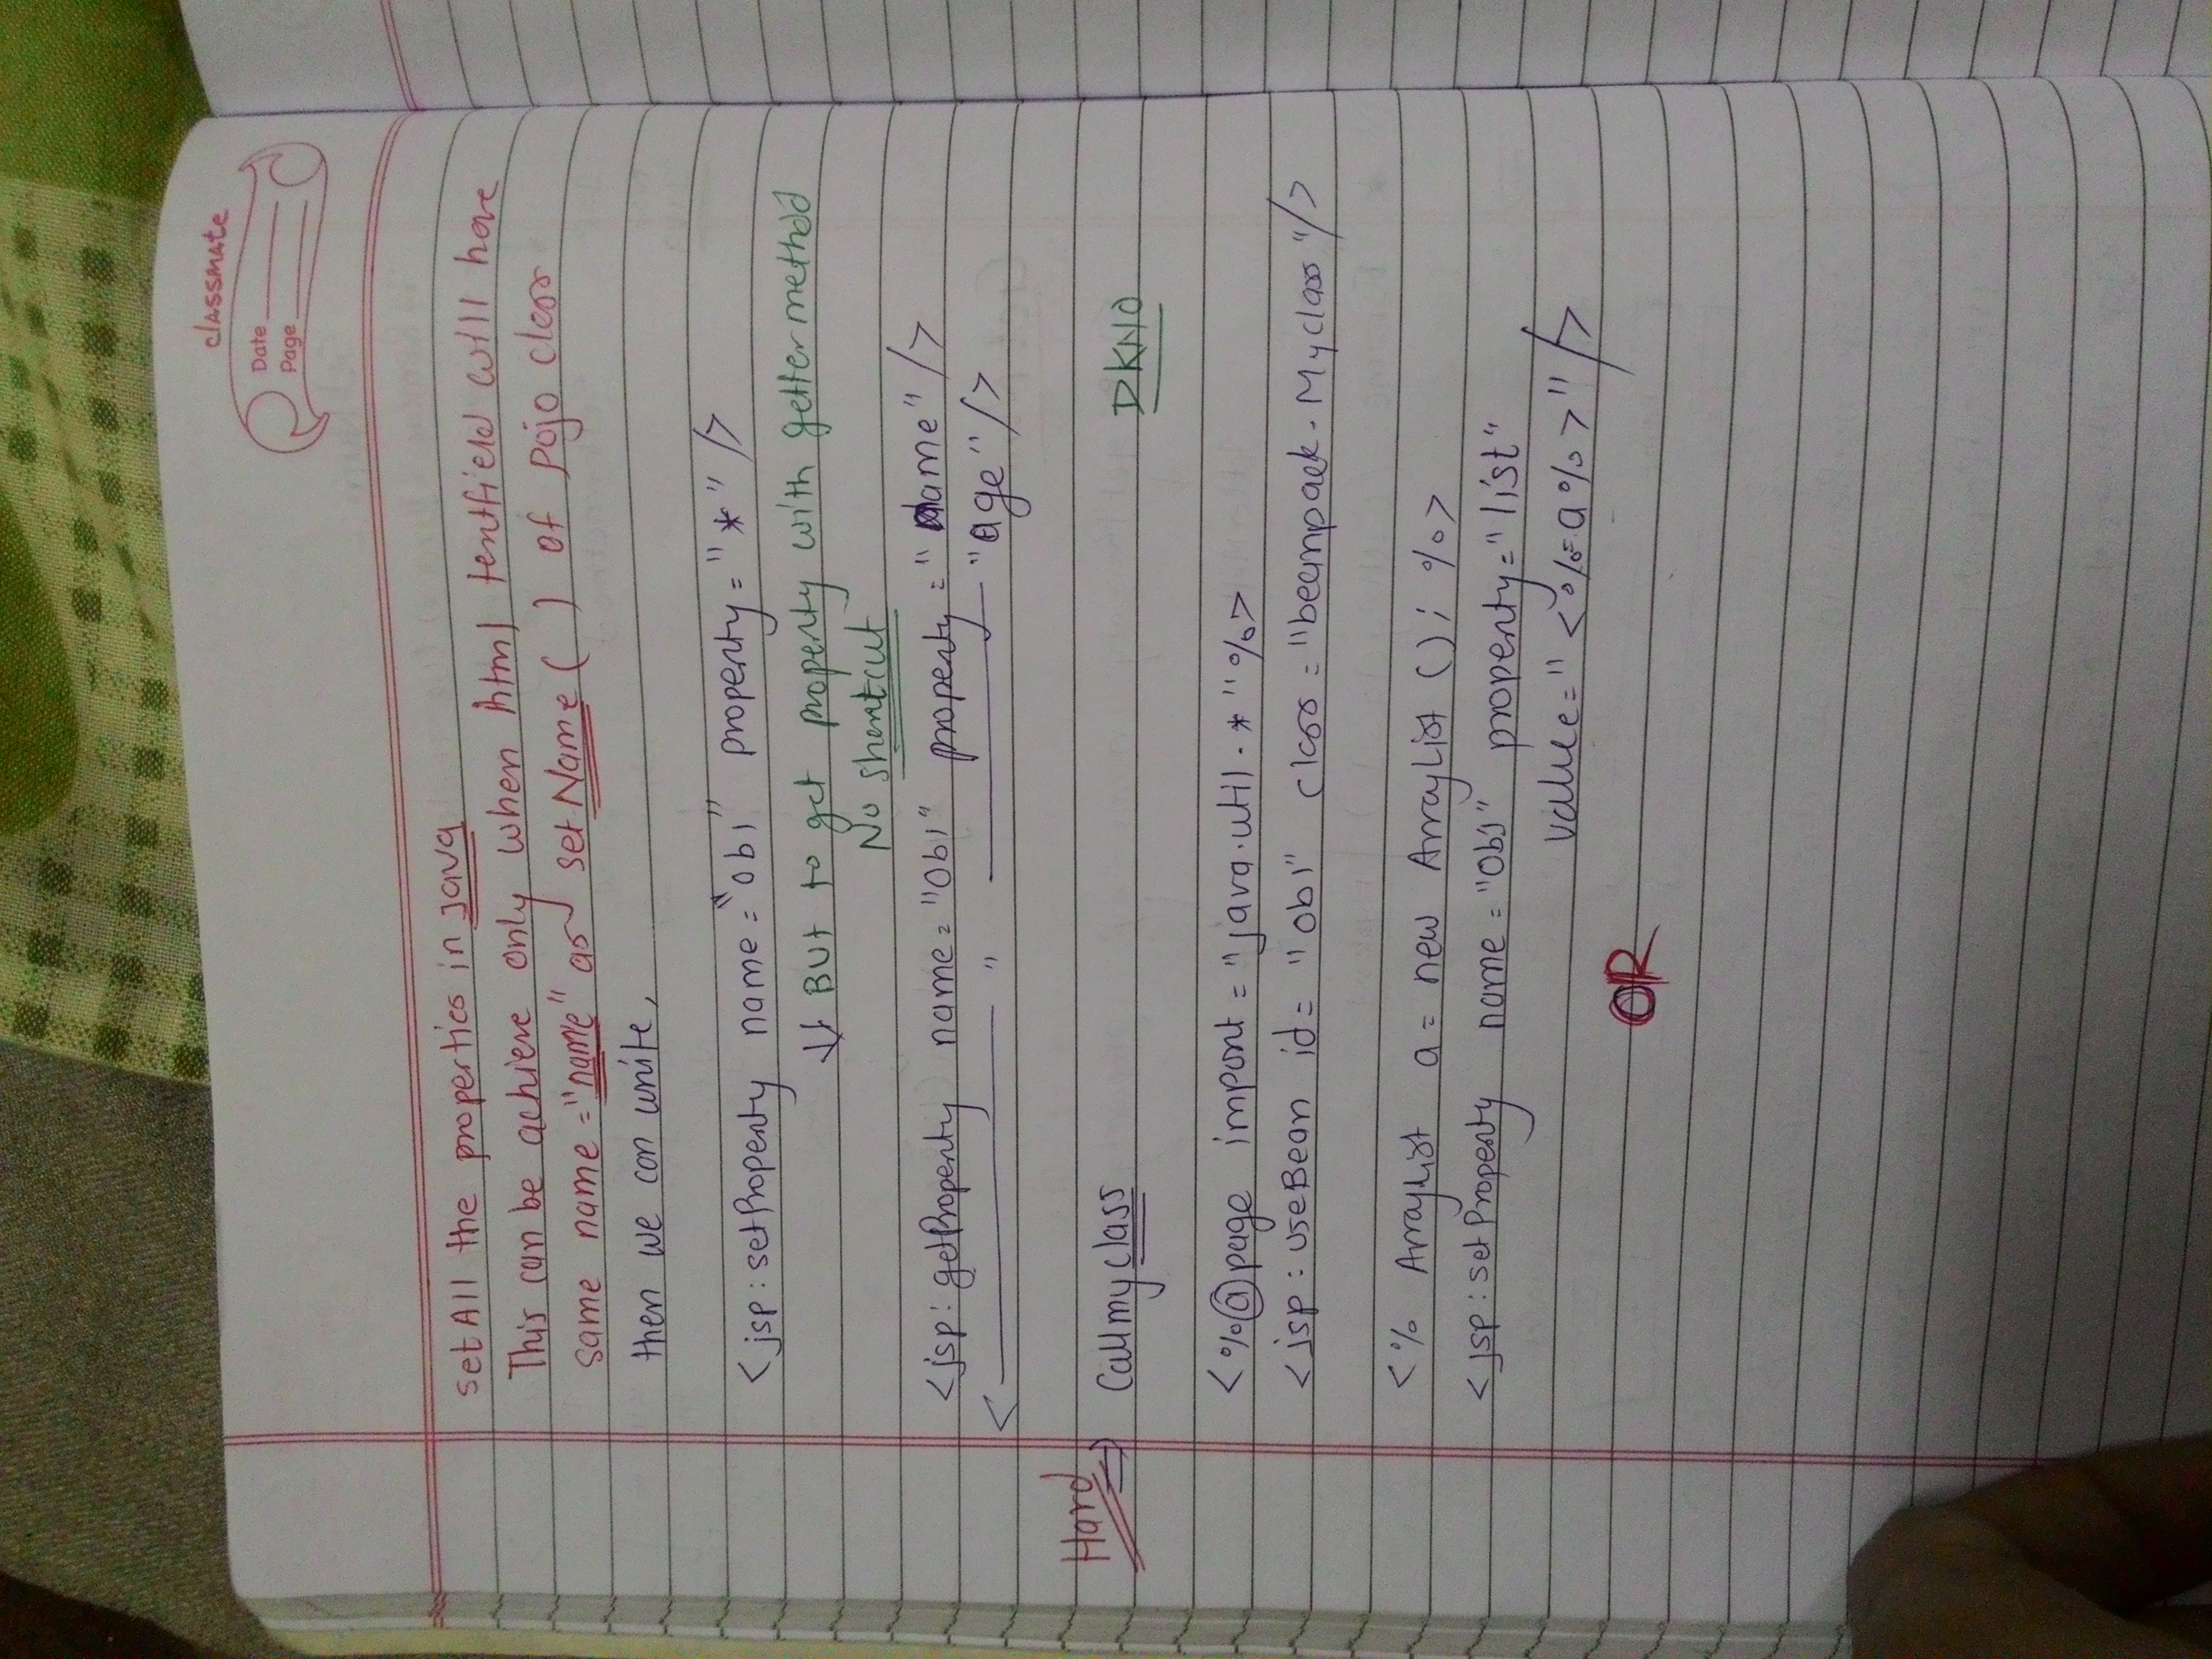 classmate
Date
Page
set All the properties in Java
This can be achieve only when html textfield will have
same name = "name" as set Name ( ) of pojo class
then we can write,
<jsp:setProperty name="ob1" property="*" />
But to get property with getter method
No shortcut
<jsp:getProperty name="ob1" property="name"/>
< " "age"/>
Hard
Call my class
DKNO
<%@page import="java.util.*"%>
<jsp:useBean id="ob1" class="beampack.Myclass"/>
<% ArrayList a = new ArrayList(); %>
<jsp:setProperty name="ob1" property="list"
value="<%=a%>"/>
OR